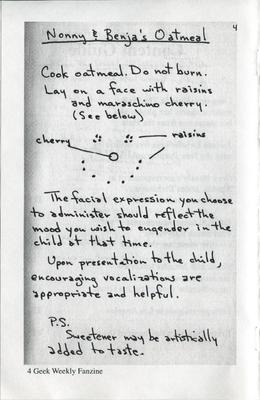 4
Nonny & Benja's Oatmeal
Cook oatmeal. Do not burn.
Lay on a face with raisins
and maraschino cherry.
(See below)
cherry
raisins
The facial expression you choose
to administer should reflect the
mood you wish to engender in the
child at that time.
Upon presentation to the child,
encouraging vocalizations are
appropriate and helpful.
P.S.
Sweetener may be artistically
added to taste.
4 Geek Weekly Fanzine